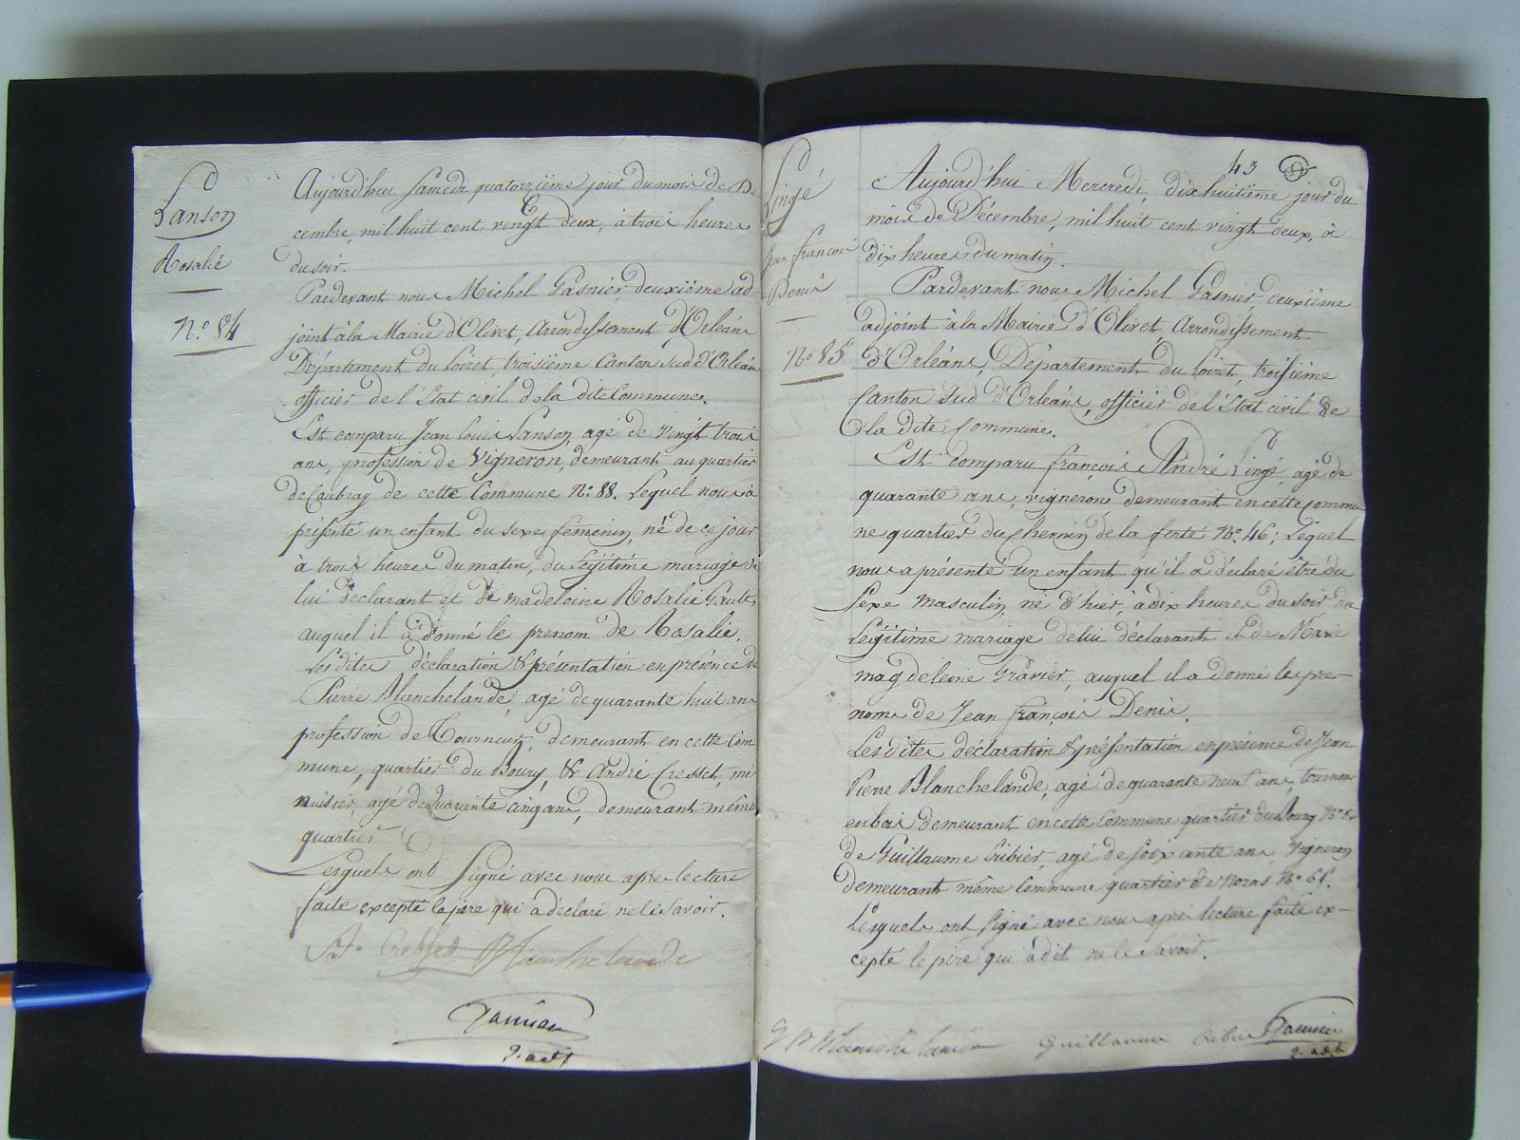 Lanson
Rosalie
N.º 84
Aujourd'hui Samedi quatorzième jour du mois de Dé
cembre, mil huit cent vingt deux, à trois heures
du soir.
Pardevant nous Michel Gasnier, deuxième ad
joint à la Mairie d'Olivet, Arrondissement d'Orléans
Département du Loiret, troisième Canton sud d'Orléans
officier de l'Etat civil de la dite Commune.
Est comparu Jean Louis Lanson, agé de vingt trois
ans, profession de Vigneron, demeurant au quartier
de Caubray de cette Commune N.º 88. Lequel nous a
présenté un enfant du sexe féminin, né de ce jour
à trois heures du matin, du légitime mariage de
lui déclarant et de madeleine Rosalie
auquel il a donné le prenom de Rosalie.
Lesdites déclaration & présentation en présence de
Pierre Blanchelande, agé de quarante huit ans
profession de Tourneur, demeurant en cette Com
mune, quartier du Bourg, & André Cresset, mé
nuisier, agé de Quarante cinq ans, demeurant même
quartier
Lesquels ont Signé avec nous après lecture
faite excepté le père qui a déclaré ne le savoir.
Blanchelande
Gasnier
2. adjt
43
Lingé
Jean françois
Denis
N.º 85
Aujourd'hui Mercredi, dix huitième jour du
mois de Décembre, mil huit cent vingt deux, à
dix heures du matin.
Pardevant nous Michel Gasnier deuxième
adjoint à la Mairie d'Olivet, Arrondissement
d'Orléans, Département du Loiret, troisième
Canton Sud d'Orléans, officier de l'Etat civil de
la dite Commune.
Est comparu françois André Lingé, agé de
quarante ans, vigneron, demeurant en cette commu
ne quartier du Chemin de la ferté N.º 46; Lequel
nous a présenté un enfant qu'il a déclaré être du
Sexe masculin, né d'hier, à dix heures du soir du
Légitime mariage de lui déclarant & de Marie
magdeleine Gravier, auquel il a donné les pré-
noms de Jean françois Denis.
Lesdites déclaration & présentation en présence de Jean
Pierre Blanchelande, agé de quarante neuf ans, tourneur
en bois demeurant en cette Commune quartier du Bourg
& de Guillaume Ribier, agé de soixante ans Vigneron
demeurant même Commune quartier de N.º 61.
Lesquels ont signé avec nous après lecture faite ex-
cepté le père qui a dit ne le savoir.
Guillaume Ribier
Gasnier
2. adjt